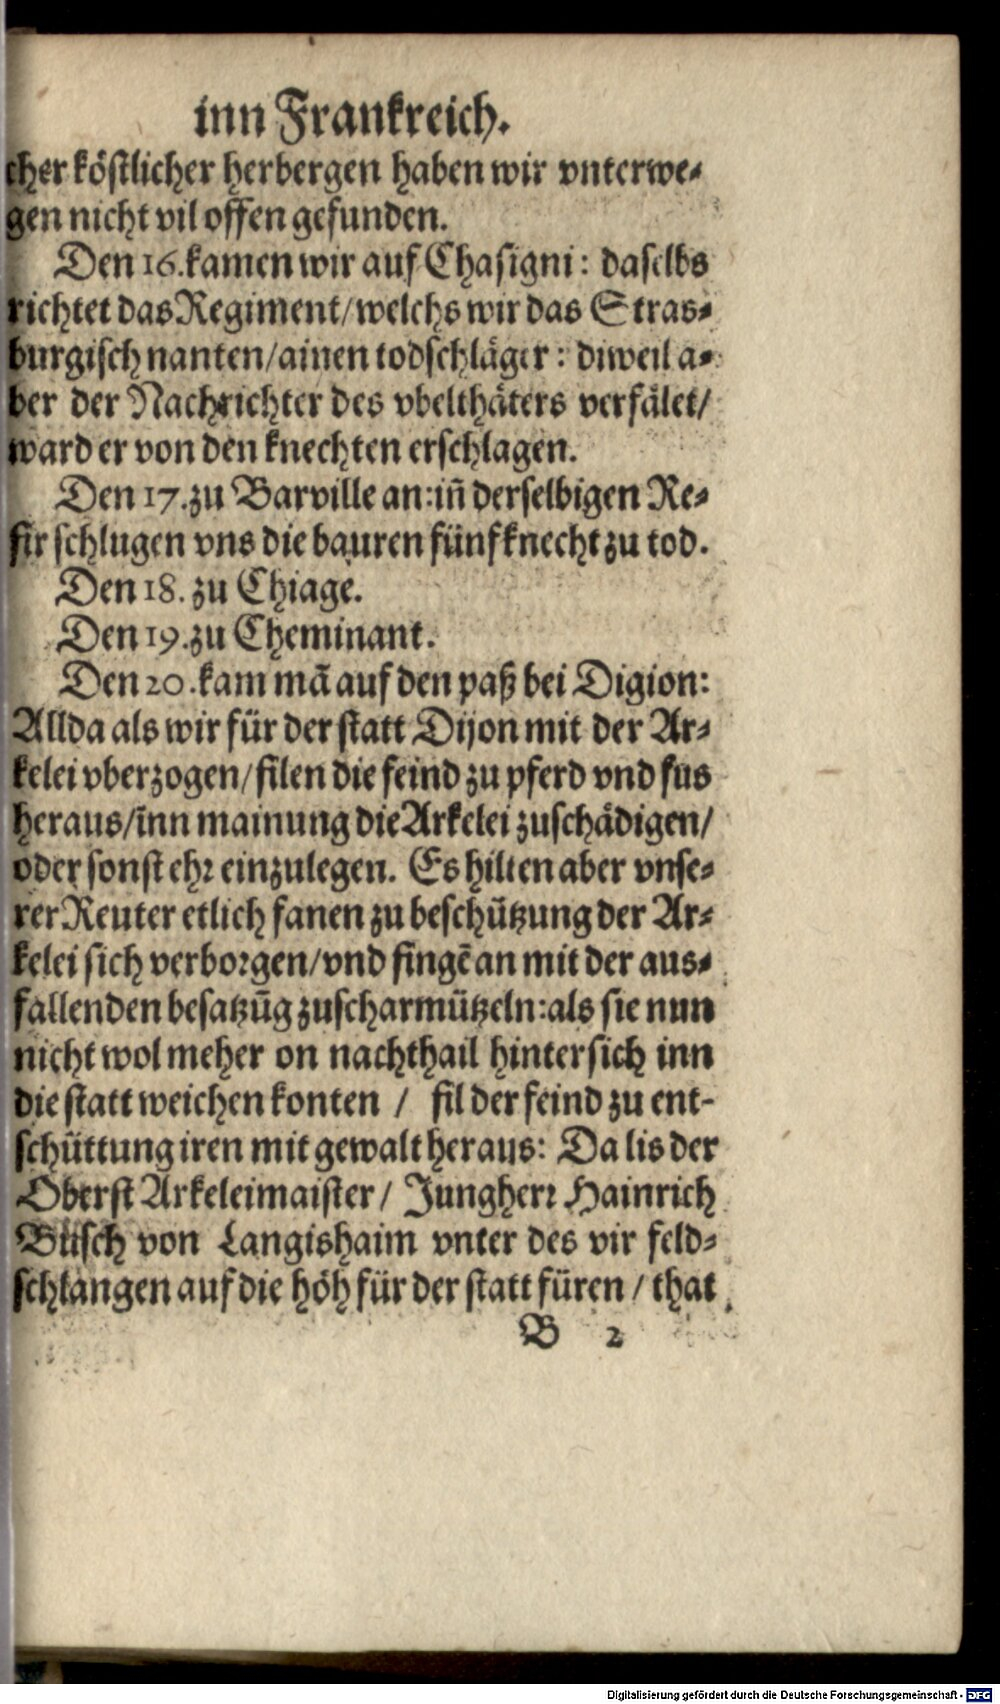 inn Frankreich.
cher köstlicher herbergen haben wir vnterwe⸗
gen nicht vil offen gefunden.
Den 16. kamen wir auf Chasigni: daselbs
richtet das Regiment/ welchs wir das Stras⸗
burgisch nanten/ ainen todschläger: diweil a⸗
ber der Nachrichter des vbelthäters verfälet/
ward er von den knechten erschlagen.
Den 17. zu Barville an: iñ derselbigen Re⸗
fir schlugen vns die bauren fünf knecht zu tod.
Den 18. zu Chiage.
Den 19. zu Cheminant.
Den 20. kam mã auf den paß bei Digion:
Allda als wir für der statt Dijon mit der Ar⸗
kelei vberzogen/ filen die feind zu pferd vnd fus
heraus/ inn mainung die Arkelei zuschädigen/
oder sonst ehr einzulegen. Es hilten aber vnse⸗
rer Reuter etlich fanen zu beschützung der Ar⸗
kelei sich verborgen/ vnd fingẽ an mit der aus⸗
fallenden besatzũg zuscharmützeln: als sie nun
nicht wol meher on nachthail hintersich inn
die statt weichen konten / fil der feind zu ent-
schüttung iren mit gewalt heraus: Da lis der
Oberst Arkeleimaister/ Jungherr Hainrich
Büsch von Langishaim vnter des vir feld⸗
schlangen auf die höh für der statt füren / that
B 2
Digitalisierung gefördert durch die Deutsche Forschungsgemeinschaft - DFG